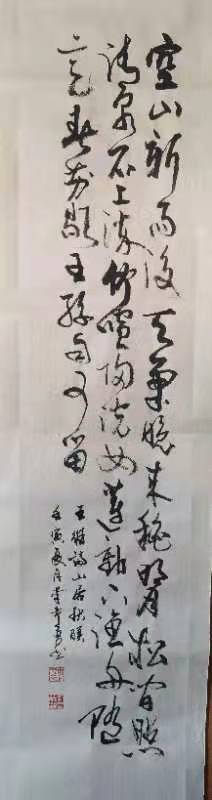 空山新雨後天氣晚來秋明月松間照
清泉石上流竹喧歸浣女蓮動下漁舟隨
意春芳歇王孫自可留
王維詩山居秋暝
壬寅夏月李書